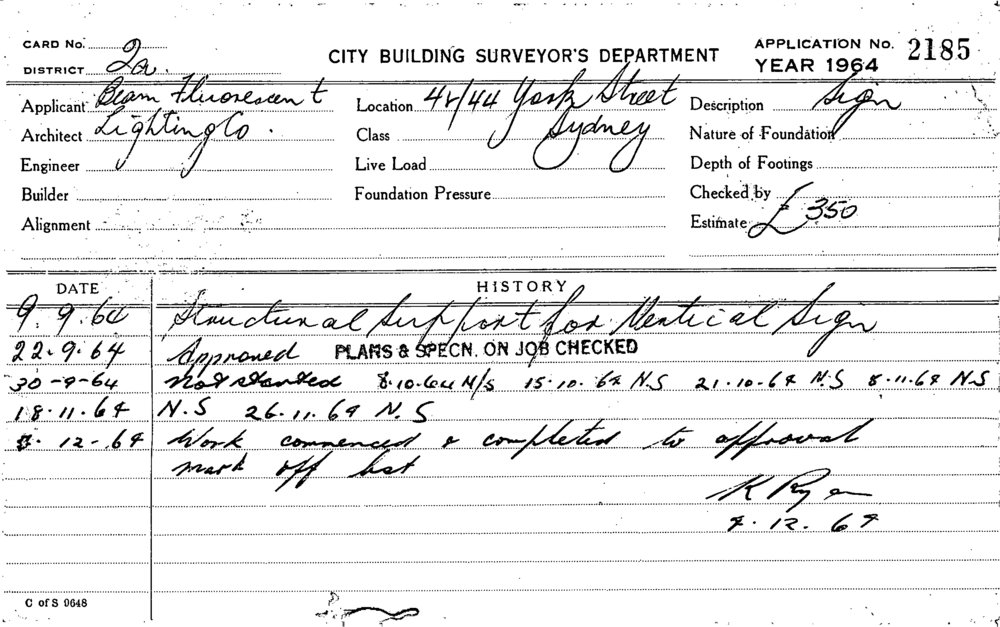 CARD No.
DISTRICT 2a.
CITY BUILDING SURVEYOR'S DEPARTMENT
APPLICATION No. 2185
YEAR 1964
Applicant Beam Fluorescent
Location 42/44 York Street
Description Sign
Architect Lighting Co.
Class Sydney
Nature of Foundation
Engineer
Live Load
Depth of Footings
Builder
Foundation Pressure
Checked by
Alignment
Estimate £350
DATE HISTORY
9.9.64 Structural Support for Vertical Sign
22.9.64 Approved PLANS & SPECN. ON JOB CHECKED
30-9-64 Not started 8.10.64 N/S 15.10.64 N.S 21.10.64 N.S 8.11.64 N.S
18.11.64 N.S 26.11.64 N.S
12-64 Work commenced & completed to approval
mark off list
K Ryan
12.64
C of S 9648